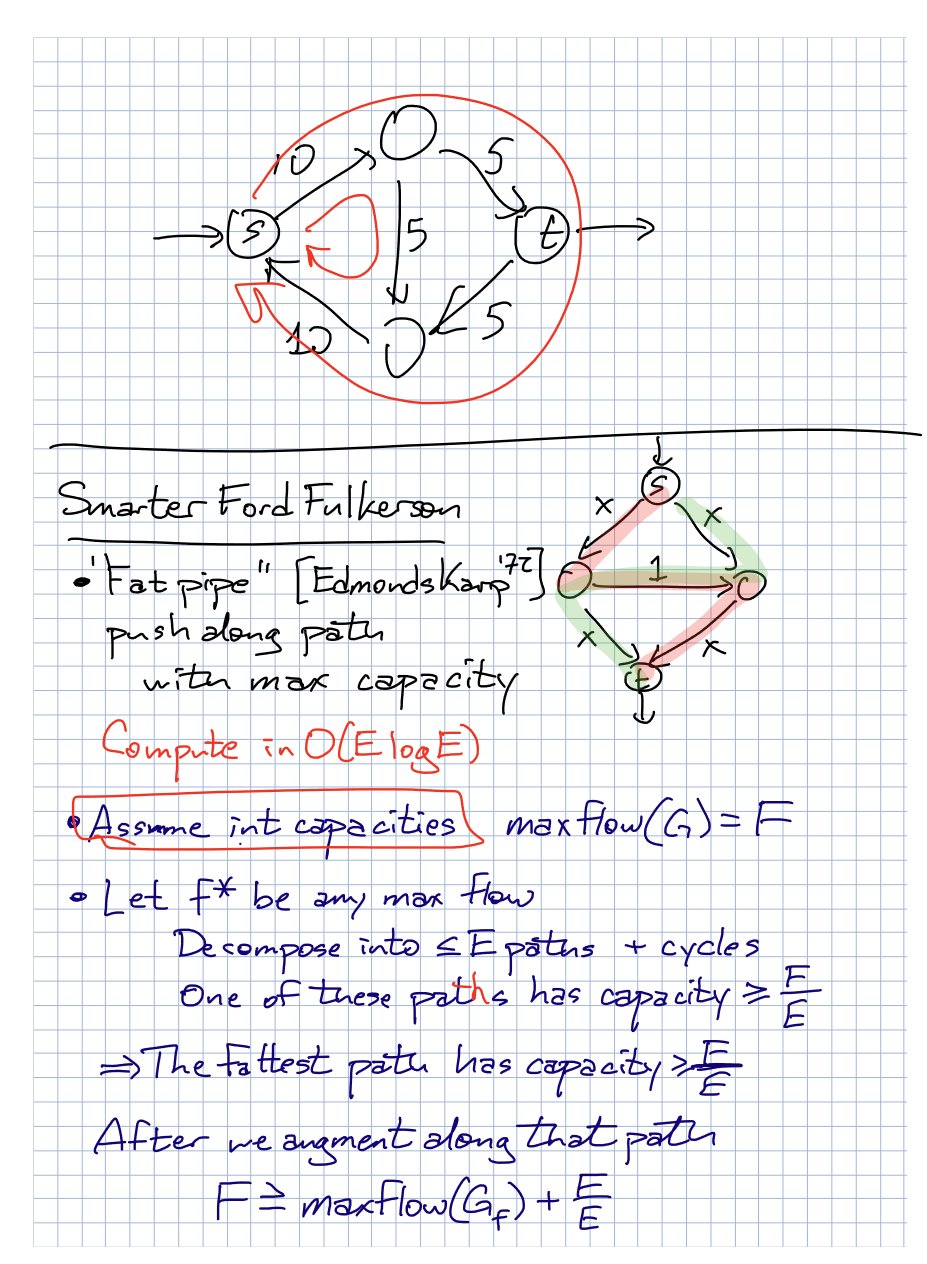 10
5
s
5
t
10
5
s
x
x
Smarter Ford Fulkerson
• "Fat pipe" [Edmonds Karp '72]
1
push along path
x
x
with max capacity
t
Compute in O(E log E)
• Assume int capacities maxflow(G) = F
• Let f* be any max flow
Decompose into ≤ E paths + cycles
One of these paths has capacity ≥ F/E
⇒ The fattest path has capacity ≥ F/E
After we augment along that path
F ≥ maxflow(G_f) + F/E